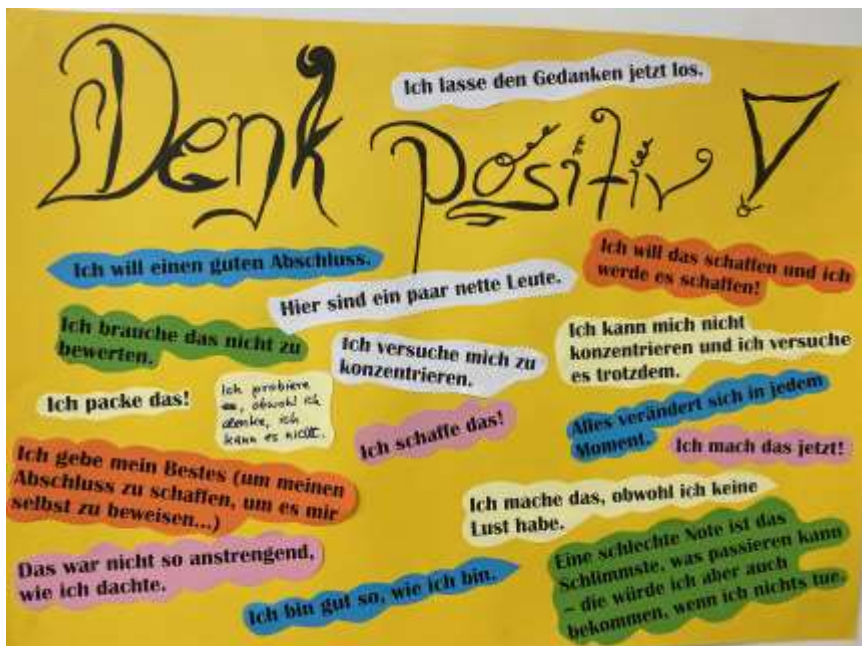 Denk
Ich lasse den Gedanken jetzt los.
positiv!
Ich will einen guten Abschluss.
Hier sind ein paar nette Leute.
Ich will das schaffen und ich
werde es schaffen!
Ich brauche das nicht zu
bewerten.
Ich versuche mich zu
konzentrieren.
Ich kann mich nicht
konzentrieren und ich versuche
es trotzdem.
Ich packe das!
Ich probiere
es, obwohl ich
denke, ich
kann es nicht.
Ich schaffe das!
Alles verändert sich in jedem
Moment.
Ich mach das jetzt!
Ich gebe mein Bestes (um meinen
Abschluss zu schaffen, um es mir
selbst zu beweisen...)
Ich mache das, obwohl ich keine
Lust habe.
Das war nicht so anstrengend,
wie ich dachte.
Ich bin gut so, wie ich bin.
Eine schlechte Note ist das
Schlimmste, was passieren kann
– die würde ich aber auch
bekommen, wenn ich nichts tue.